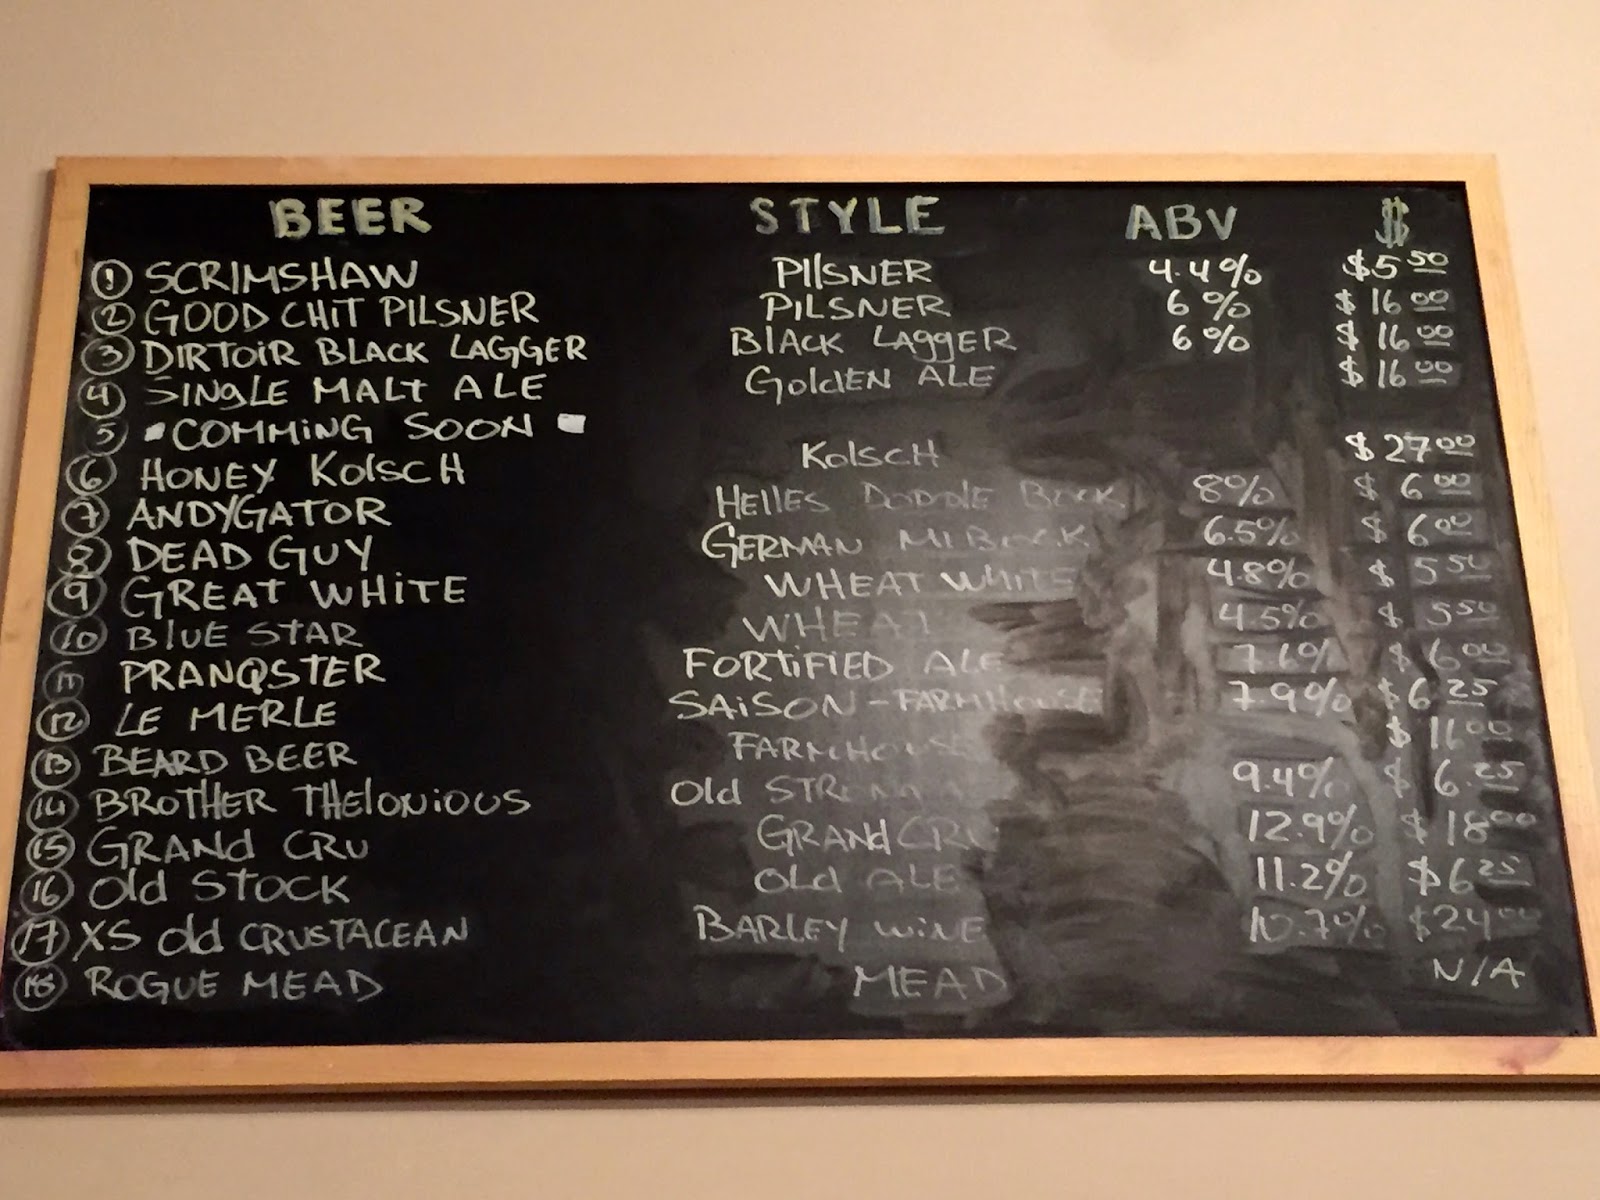 BEER STYLE ABV $
1 SCRIMSHAW PIlSNER 4.4% $5 50
2 GOOD CHIT PILSNER PILSNER 6% $16 00
3 DIRTOIR BLACK LAGGER BLACK LAGGER 6% $16 00
4 SINGLE MALT ALE GOldEN ALE $16 00
5 COMMING SOON
6 HONEY KOlSCH KOlSCH $27 00
7 ANDYGATOR HEllES DODDLE BOCK 8% $6 00
8 DEAD GUY GERMAN MIBOCK 6.5% $6 00
9 GREAT WHITE WHEAT WHITE 4.8% $5 50
10 BlUE STAR WHEAT 4.5% $5 50
11 PRANQSTER FORTIFIED ALE 7.6% $6 00
12 LE MERLE SAISON-FARMHOUSE 7.9% $6 25
13 BEARD BEER FARMHOUSE $11 00
14 BROTHER THElONIOUS Old STRONG 9.4% $6 25
15 GRANd CRU GRANd CRU 12.9% $18 00
16 Old STOCK OLd ALE 11.2% $6 25
17 XS old CRUSTACEAN BARLEY WINE 10.7% $24 00
18 ROGUE MEAD MEAD N/A